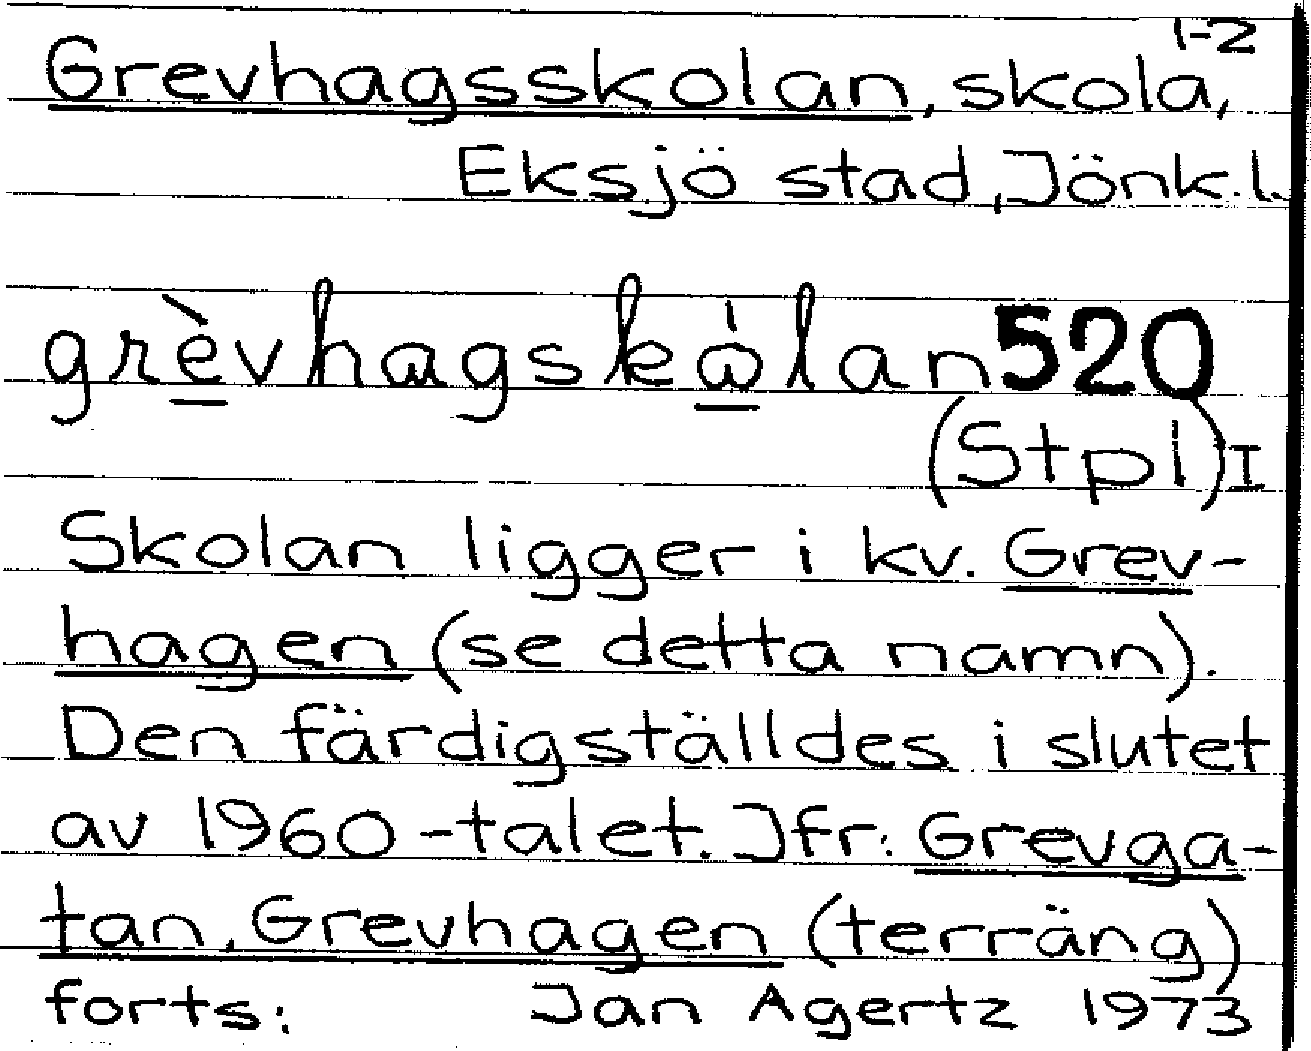 1-2
Grevhagsskolan, skola,
Eksjö stad, Jönk.l.
grèvhagskòlan 520
(Stpl) I
Skolan ligger i kv. Grev-
hagen (se detta namn).
Den färdigställdes i slutet
av 1960-talet. Jfr: Grevga-
tan, Grevhagen (terräng)
forts: Jan Agertz 1973